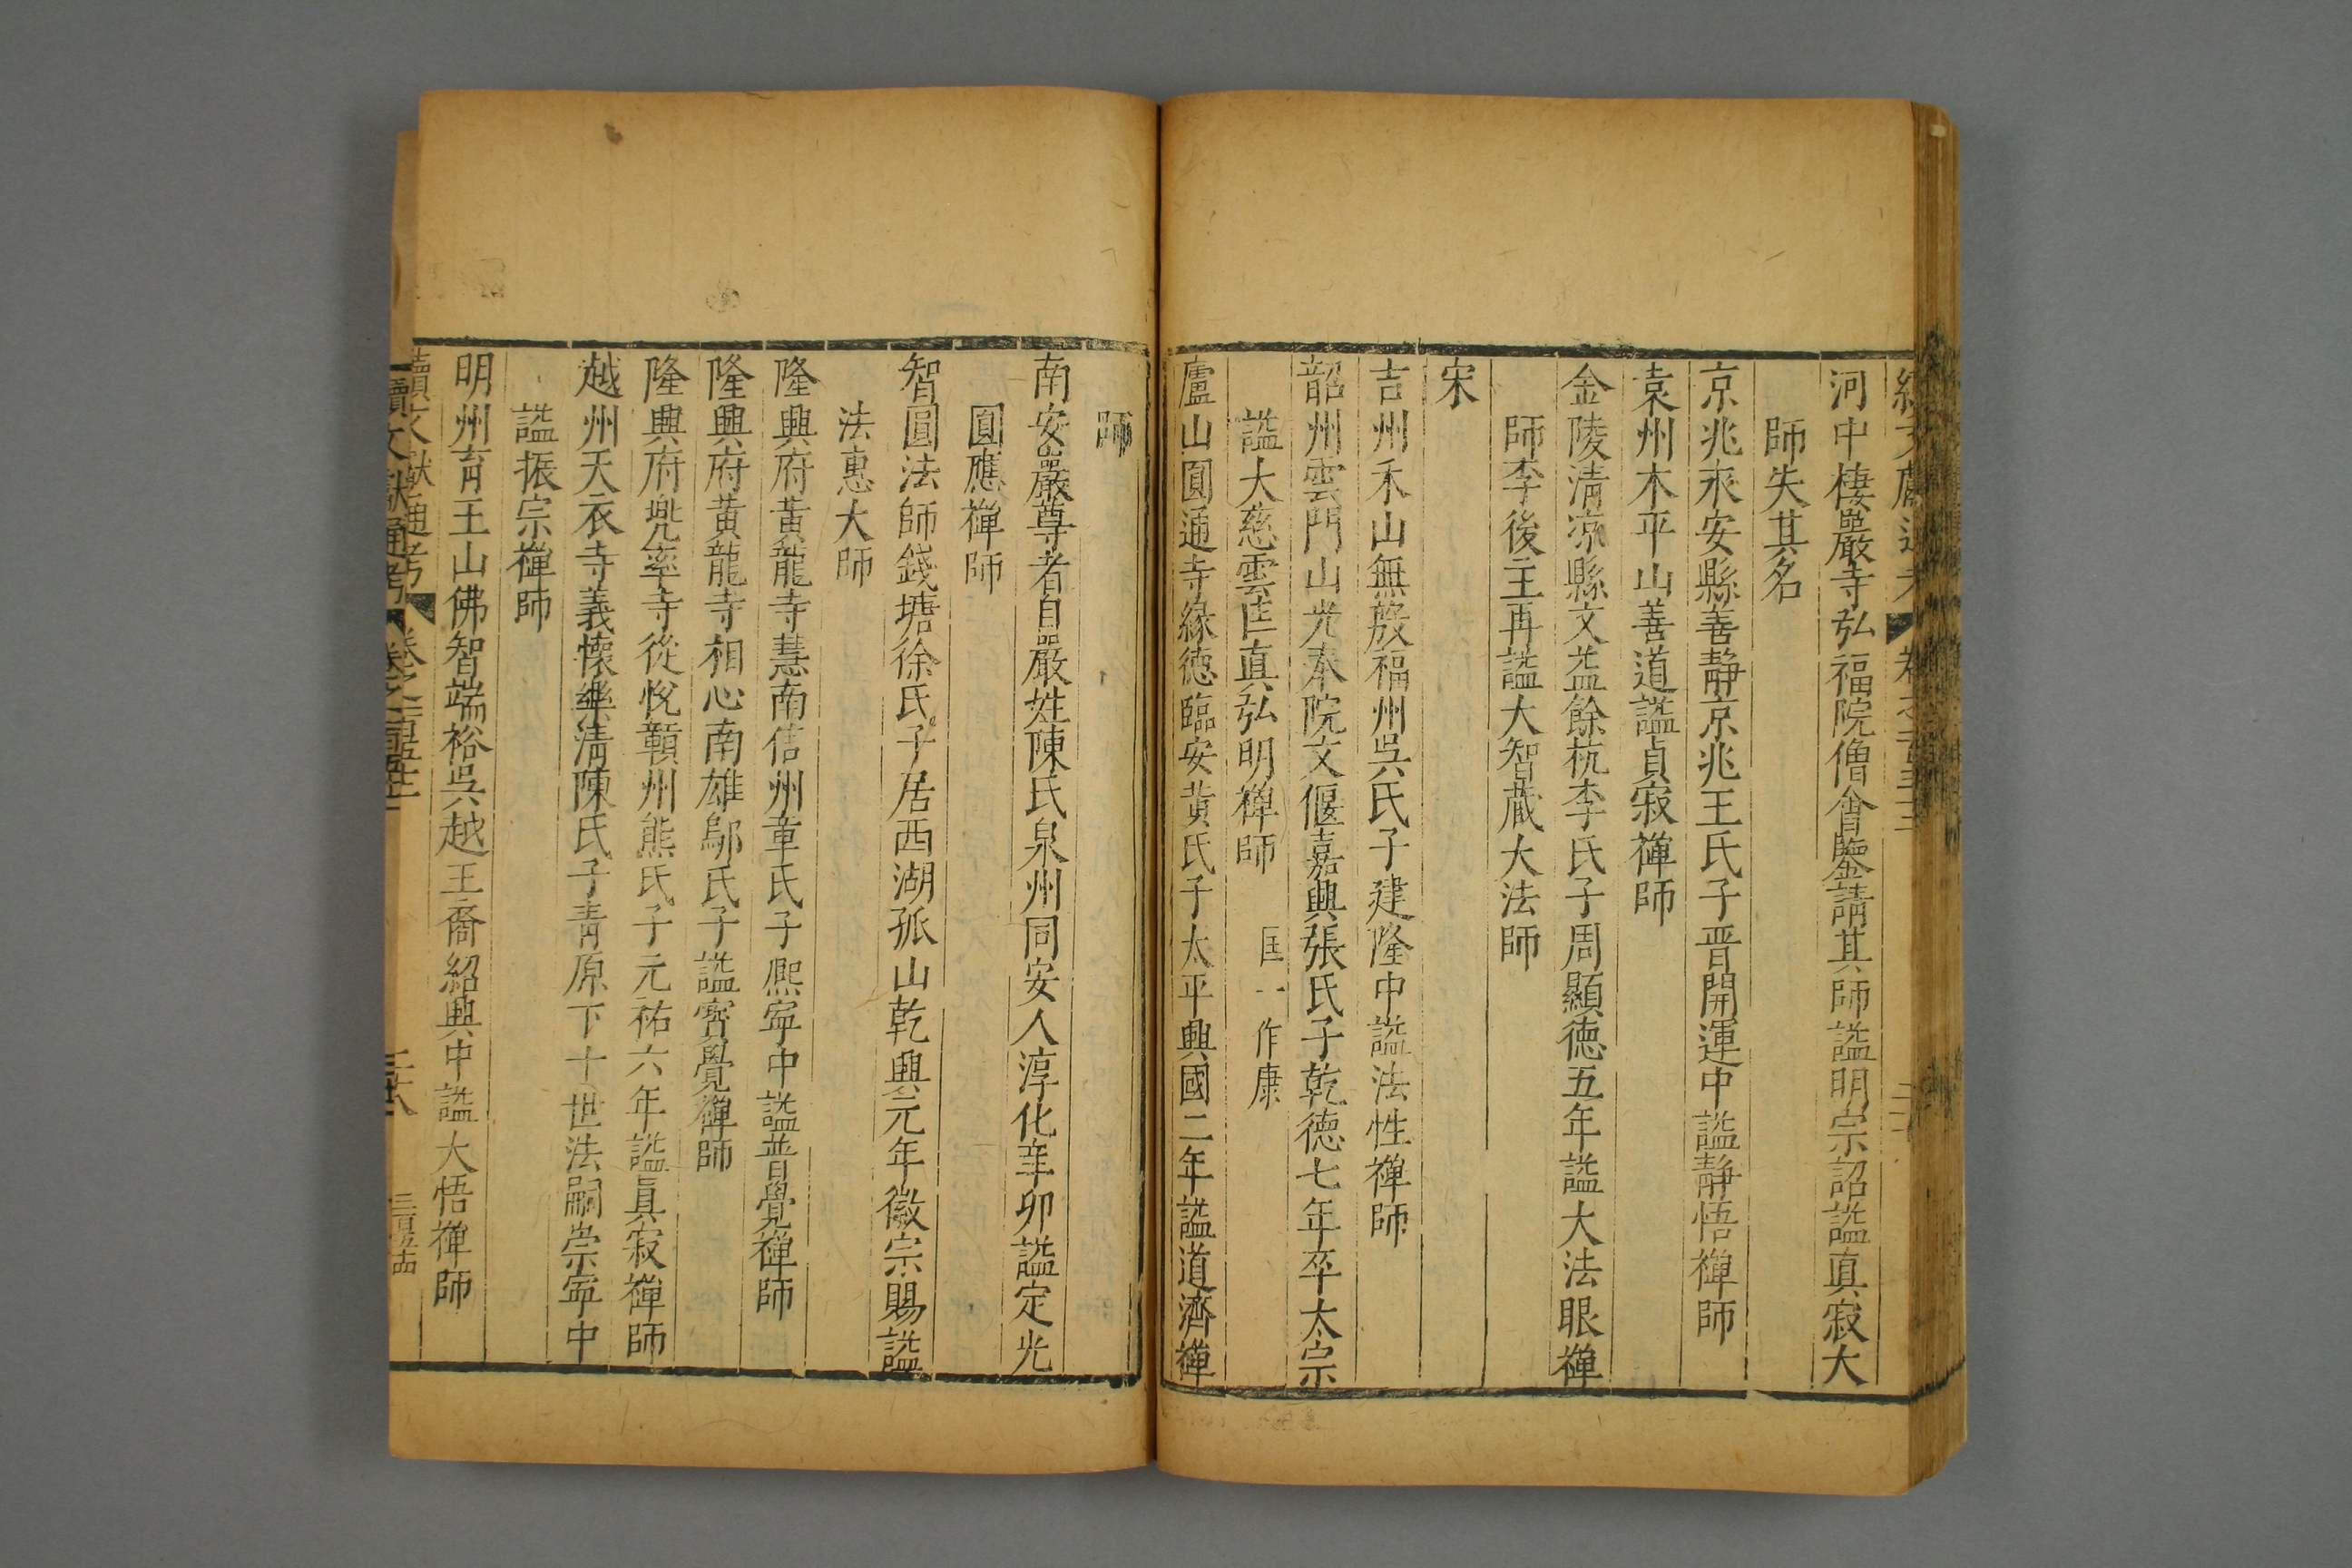 河中棲巖寺弘福院僧會鑒請其師謚明宗詔謚真寂大
師失其名
京兆永安縣善靜京兆王氏子晋開運中謚靜悟禪師
袁州木平山善道謚貞寂禪師
金陵清凉縣文益餘杭李氏子周顯德五年謚大法眼禪
師李後主再謚大智蔵大法師
宋
吉州禾山無殷福州吳氏子建隆中謚法性禪師
韶州雲門山光奉院文偃嘉興張氏子乾德七年卒太宗
謚大慈雲匡真弘明禪師 匡一作康
廬山圓通寺緣德臨安黃氏子太平興國二年謚道濟禪
師
南安巖尊者自嚴姓陳氏泉州同安人淳化辛卯謚定光
圓應禪師
智圓法師錢塘徐氏子居西湖孤山乾興元年徽宗賜謚
法惠大師
隆興府黃龍寺慧南信州章氏子熙寧中謚普覺禪師
隆興府黃龍寺祖心南雄鄔氏子謚寶覺禪師
隆興府兜率寺從悅贑州熊氏子元祐六年謚真寂禪師
越州天衣寺義懷樂清陳氏子青原下十世法嗣崇寧中
謚振宗禪師
明州育王山佛智端裕吳越王裔紹興中謚大悟禪師
續文獻通考